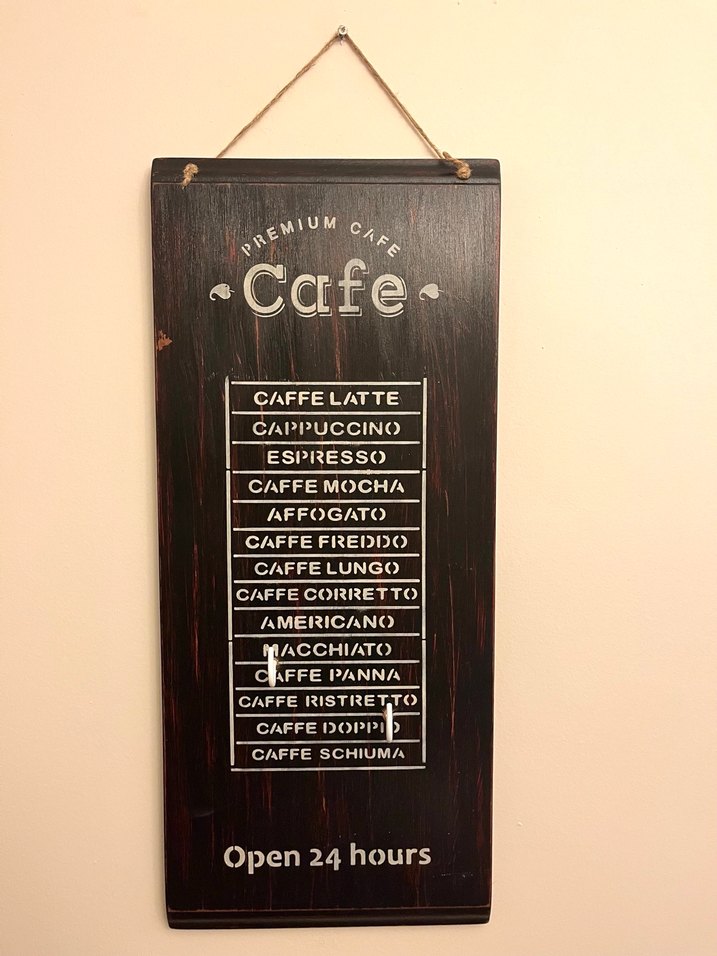 PREMIUM CAFE
Cafe
CAFFE LATTE
CAPPUCCINO
ESPRESSO
CAFFE MOCHA
AFFOGATO
CAFFE FREDDO
CAFFE LUNGO
CAFFE CORRETTO
AMERICANO
MACCHIATO
CAFFE PANNA
CAFFE RISTRETTO
CAFFE DOPPIO
CAFFE SCHIUMA
Open 24 hours